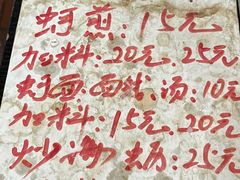 蚵煎:15元
加料:20元.25元
蚵面.面线.汤:10元
加料:15元.20元
炒海蛎:25元